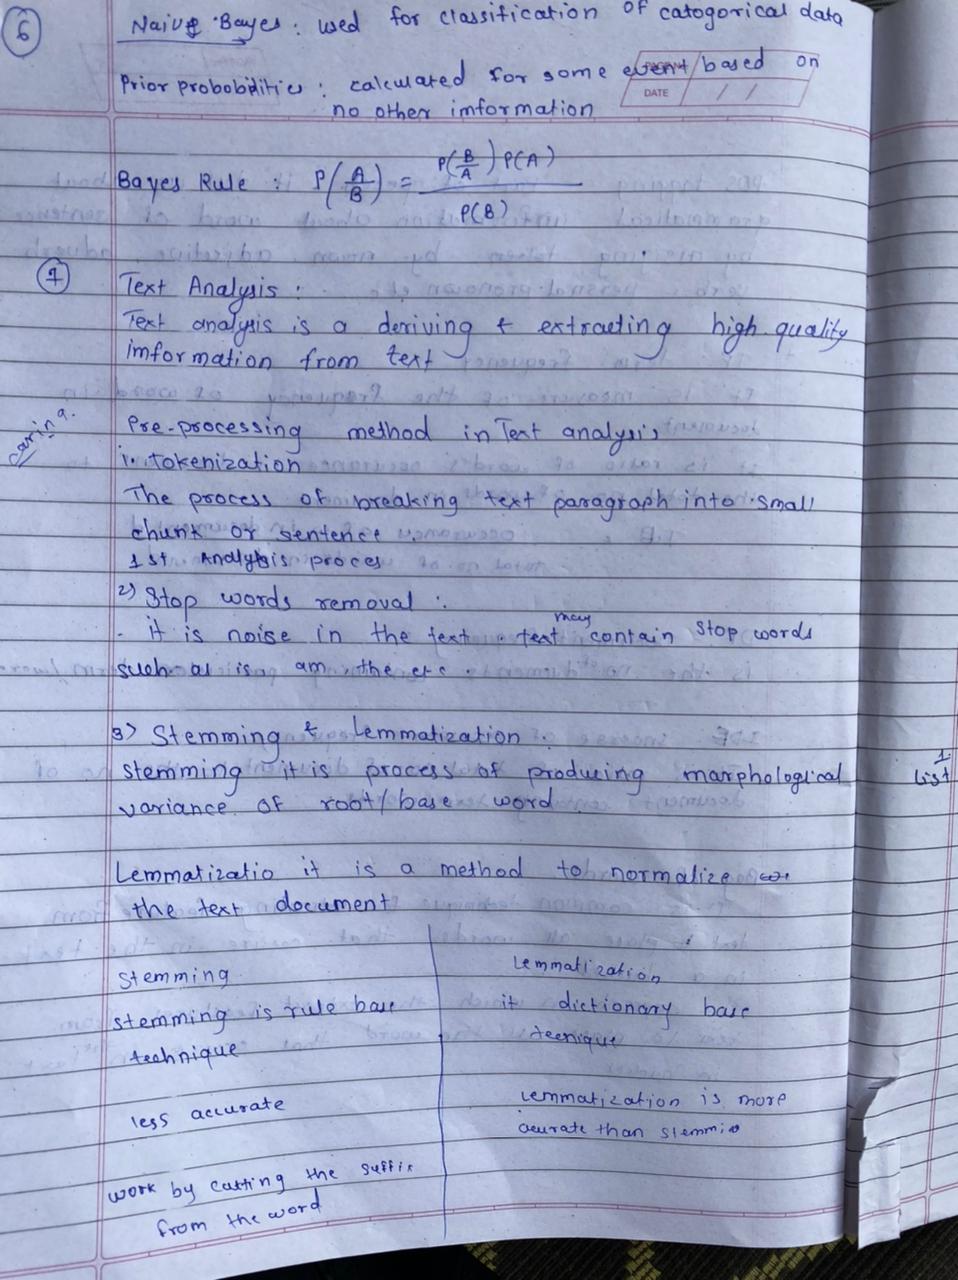 6
Naive Bayes : used for classification of catogorical data
Prior probobilities : calculated for some event based on
DATE / /
no other imformation
Bayes Rule : P(A/B) = P(B/A) P(A) / P(B)
7
Text Analysis :
Text analysis is a deriving & extracting high quality
imformation from text
Pre-processing method in Text analysis
1. tokenization
The process of breaking text paragraph into small
chunk or sentence .
1st Analysis proces
2) Stop words removal :
. it is noise in the text . text may contain stop words
such as is am, the etc .
3) Stemming & Lemmatization .
stemming it is process of producing marphological
variance of root/base word
1.
List
Lemmatizatio it is a method to normalize
the text document
Stemming
Lemmatization
stemming is rule base
technique
it dictionary base
teenique
less accurate
Lemmatization is more
acurate than stemmin
work by catting the suffix
from the word